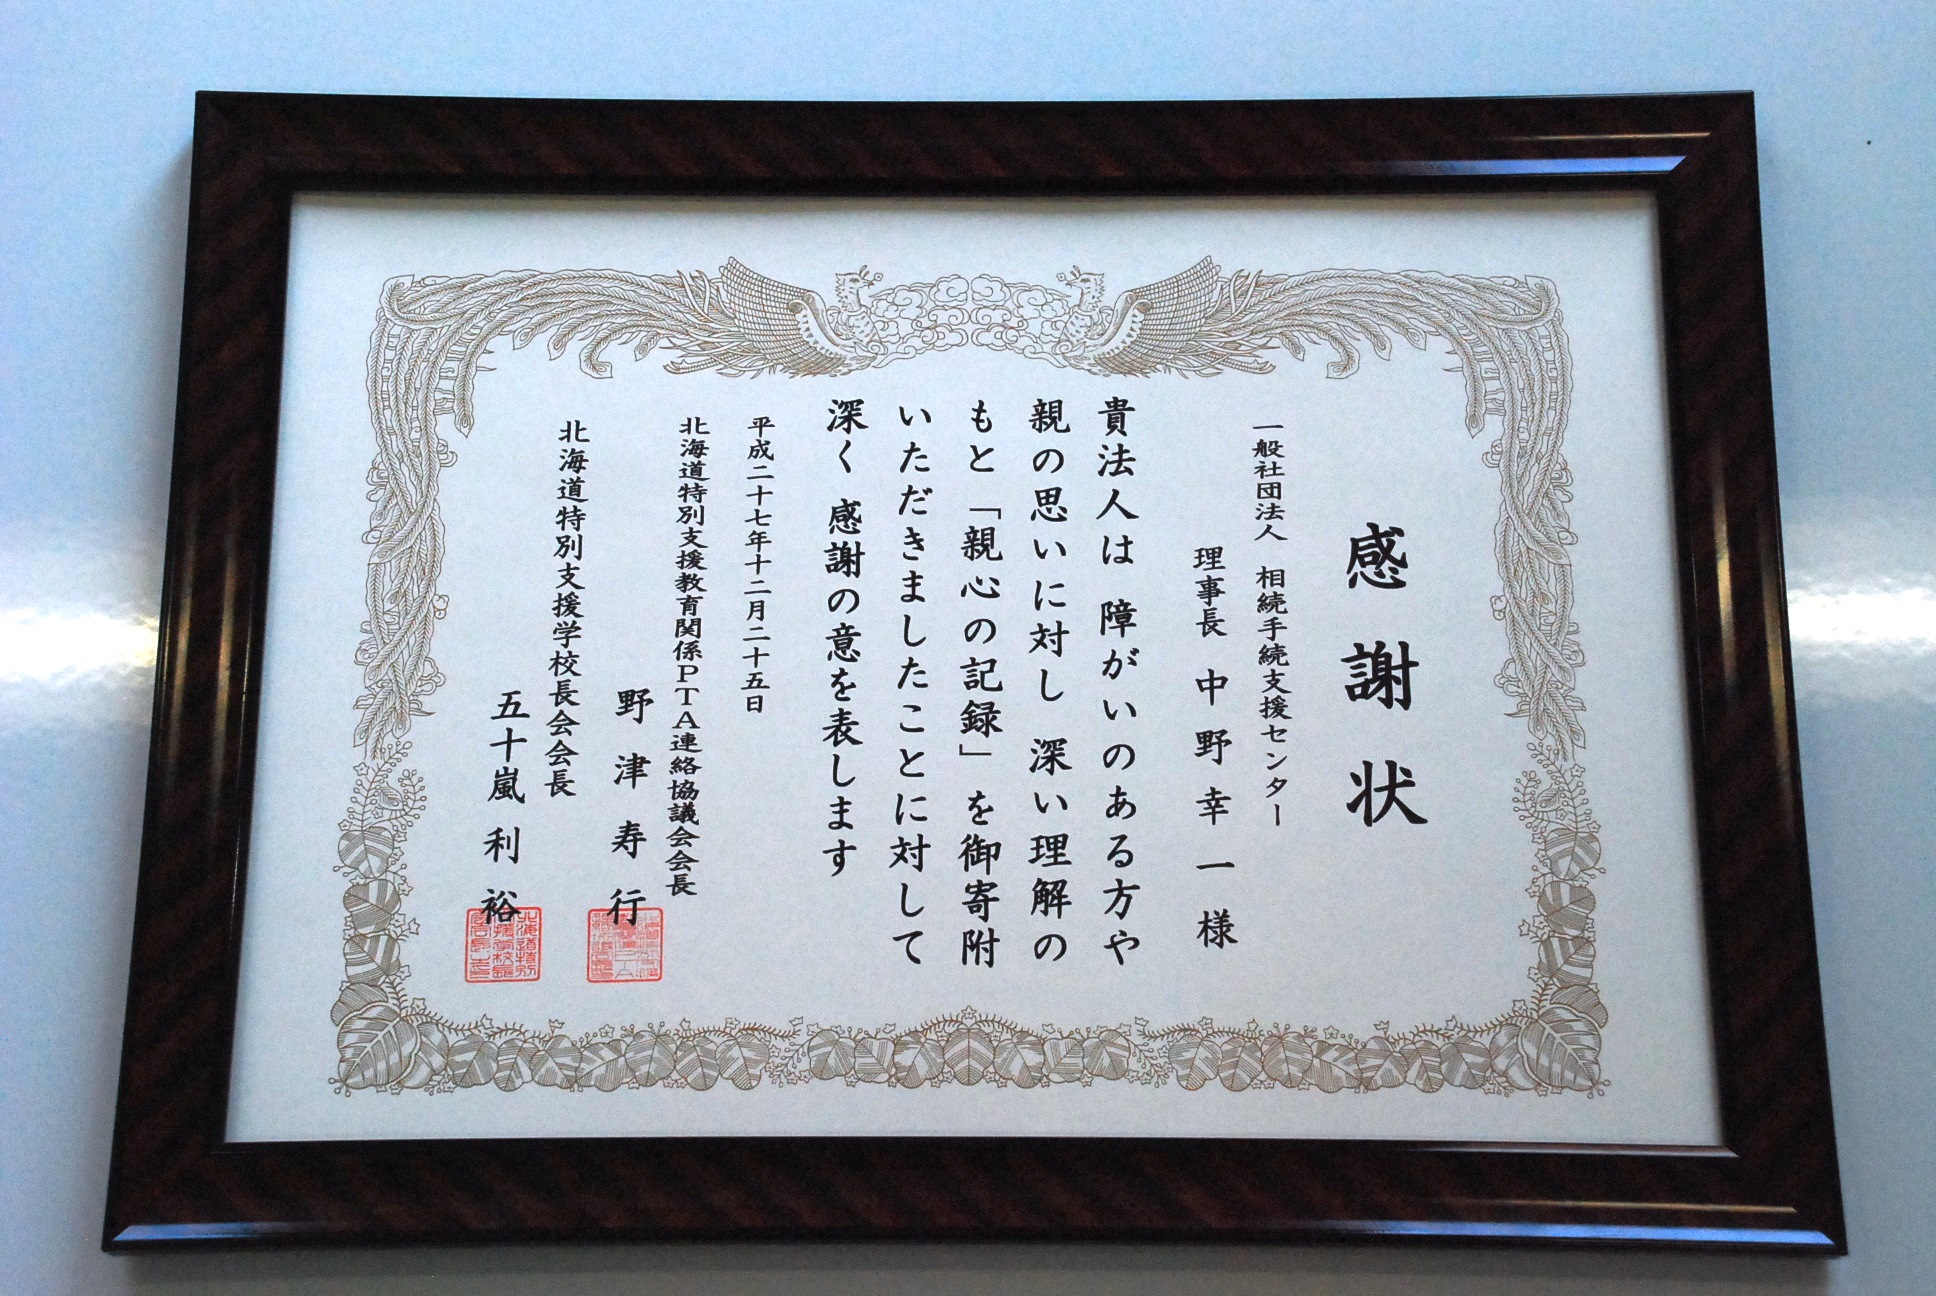 感謝状
一般社団法人 相続手続支援センター
理事長 中野幸一様
貴法人は 障がいのある方や
親の思いに対し 深い理解の
もと「親心の記録」を御寄附
いただきましたことに対して
深く 感謝の意を表します
平成二十七年十二月二十五日
北海道特別支援教育関係PTA連絡協議会会長
野津寿行
北海道特別支援学校長会会長
五十嵐利裕